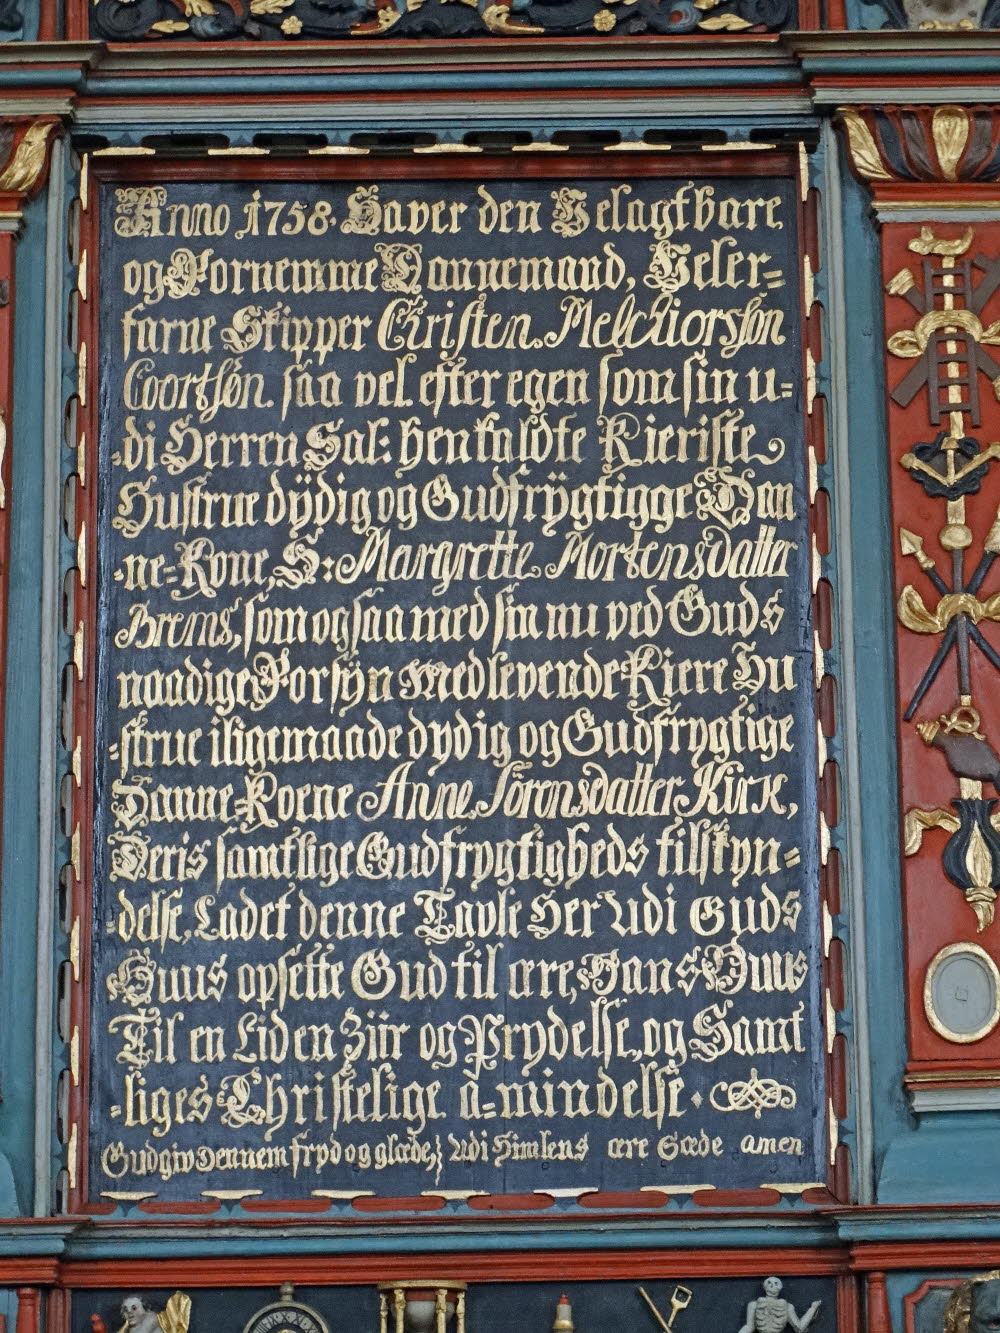 Anno 1758. Haver den Velagtbare
og Fornemme Dannemand, Veler=
farne Skipper Christen. Melchiorssøn
Coortsøn. saa vel. efter egen som sin u=
=di Herren Sal: henkaldte Kieriste
Hustrue dÿdig og Gudfrÿgtigge Dan
=ne=Kone, S: Margrette Mortensdatter
Brems, som ogsaa med sin nu ved Guds
naadige Forsÿn medlevende Kiere Hu
=strue iligemaade dydig og Gudfrygtige
Danne=Koene Anne. Sörensdatter Kirk,
Deris samtlige Gudfrygtigheds tilskyn=
=delse, Ladet denne Tavle Her Udi Guds
Huus opsette Gud til ære, Hans Huus
Til en Liden Ziir og Prydelse, og Samt
=liges Christelige a=mindelse.
Gudgiv dennem fryd og glæde, Udi Himlens ære Sæde amen